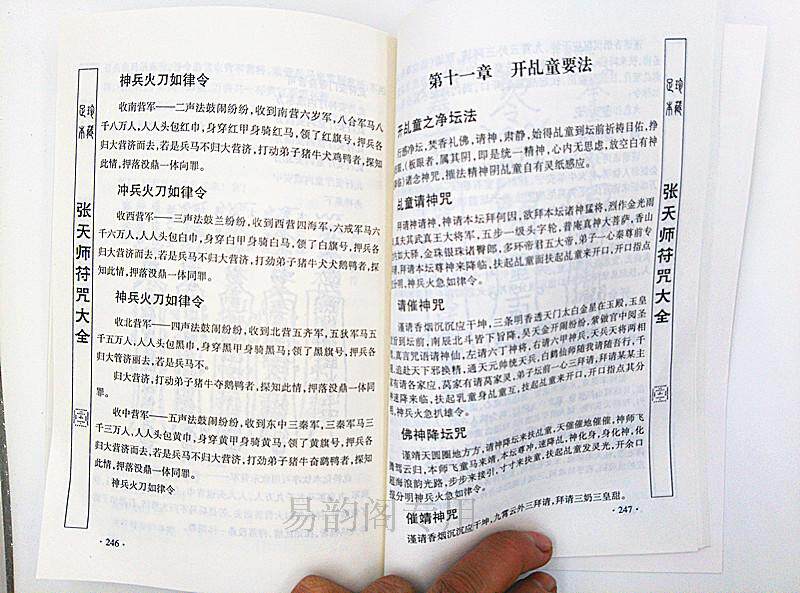 足本
珍藏
张天师符咒大全
神兵火刀如律令
收南营军——二声法鼓闹纷纷，收到南营六岁军，八合军马八
千八万人，人人头包红巾，身穿红甲身骑红马，领了红旗号，押兵各
归大营济而去，若是兵马不归大营济，打动弟子猪牛犬鸡鸭者，探知
此情，押落没鼎一体向罪。
冲兵火刀如律令
收西营军——三声法鼓兰纷纷，收到西营四海军，六戒军马六
千六万人，人人头包白巾，身穿白甲身骑白马，领了白旗号，押兵各
归大营济而去，若是兵马不归大营济，打劲弟子猪牛犬鹅鸭者，探知
此情，押落没鼎一体同罪。
神兵火刀如律令
收北营军——四声法鼓闹纷纷，收到北营五齐军，五狄军马五
千五万人，人人头包黑巾，身穿黑甲身骑黑马；领了黑旗号，押兵各
归大管济丽去，若是兵马不。
归大营济，打动弟子猪牛夺鹅鸭者，探知此情，押落没鼎一体同
罪。
收中营军——五声法鼓闹纷纷，收到东中三秦军，三秦军马三
千三万人，人人头包黄巾，身穿黄甲身骑黄马，领了黄旗号，押兵各
归大营济而去，若是兵马不归大营济，打劲弟子猪牛奋鹅鸭者，探知
此情，押落没鼎一体同罪。
神兵火刀如律令
·246·
第十一章 开乩童要法
开乩童之净坛法
行感净坛，焚香礼佛，请神，肃静，始得乩童到坛前祈祷目佑，挣
眼，(板眼者，属其阴，即是统一精神，心内无思虑，放空白有神
降临)诸念神咒，摧法精神阴乩童自有灵纸感应。
乩童请神咒
拜请神请神，神请本坛拜何因，欲拜本坛诸神猛将，烈作金光雨
真大其武真王大将军，五步一级头字轮，普庵真神大菩萨，香山
如太驿，金珠银珠诸臀郎，多环帝君五大帝，弟子一心奉尊前专
拜请本坛尊神来降临，扶起乩童面扶起乩童来开口，开口指点
分明，神兵火急如律令。
请催神咒
谨请香烟沉沉应干坤，三条明香透天门太白金星在玉殿，玉皇
到坛前，南辰北斗皆下旨降，吴天金开闹纷纷，紫做官中阅圣
真言咒语请神仙，左请六丁神将，右请六甲神兵，天兵天将两相
追赴天下邪换精，通天元帅统天兵，白鹤仙师随我请随吾行，千
有请各家应，莴家有请莴家吴，弟子坛前一心三拜请，拜请某某主
速降来临，扶起乳童身乩童互，扶起乩童来开口，开口指点其分
神兵火急扒雄令。
佛神降坛咒
谨靖天圆圈地方方，请神降坛来扶乩童，天催催地催催，神师飞
腾驾云归，本师飞童马来靖，本坛尊冲，速降乩，神化身，身化神，化
海浪韵光路，步步来接引，寸寸来抉童，扶起乩童发灵光，开余口
分明神兵火急如律令。
催婧神咒
谨请香烟沉沉应干坤，九霄云外三拜请，拜请三奶三皇甜。
·247·
足本
珍藏
张天师符咒大全
易韵阁专用